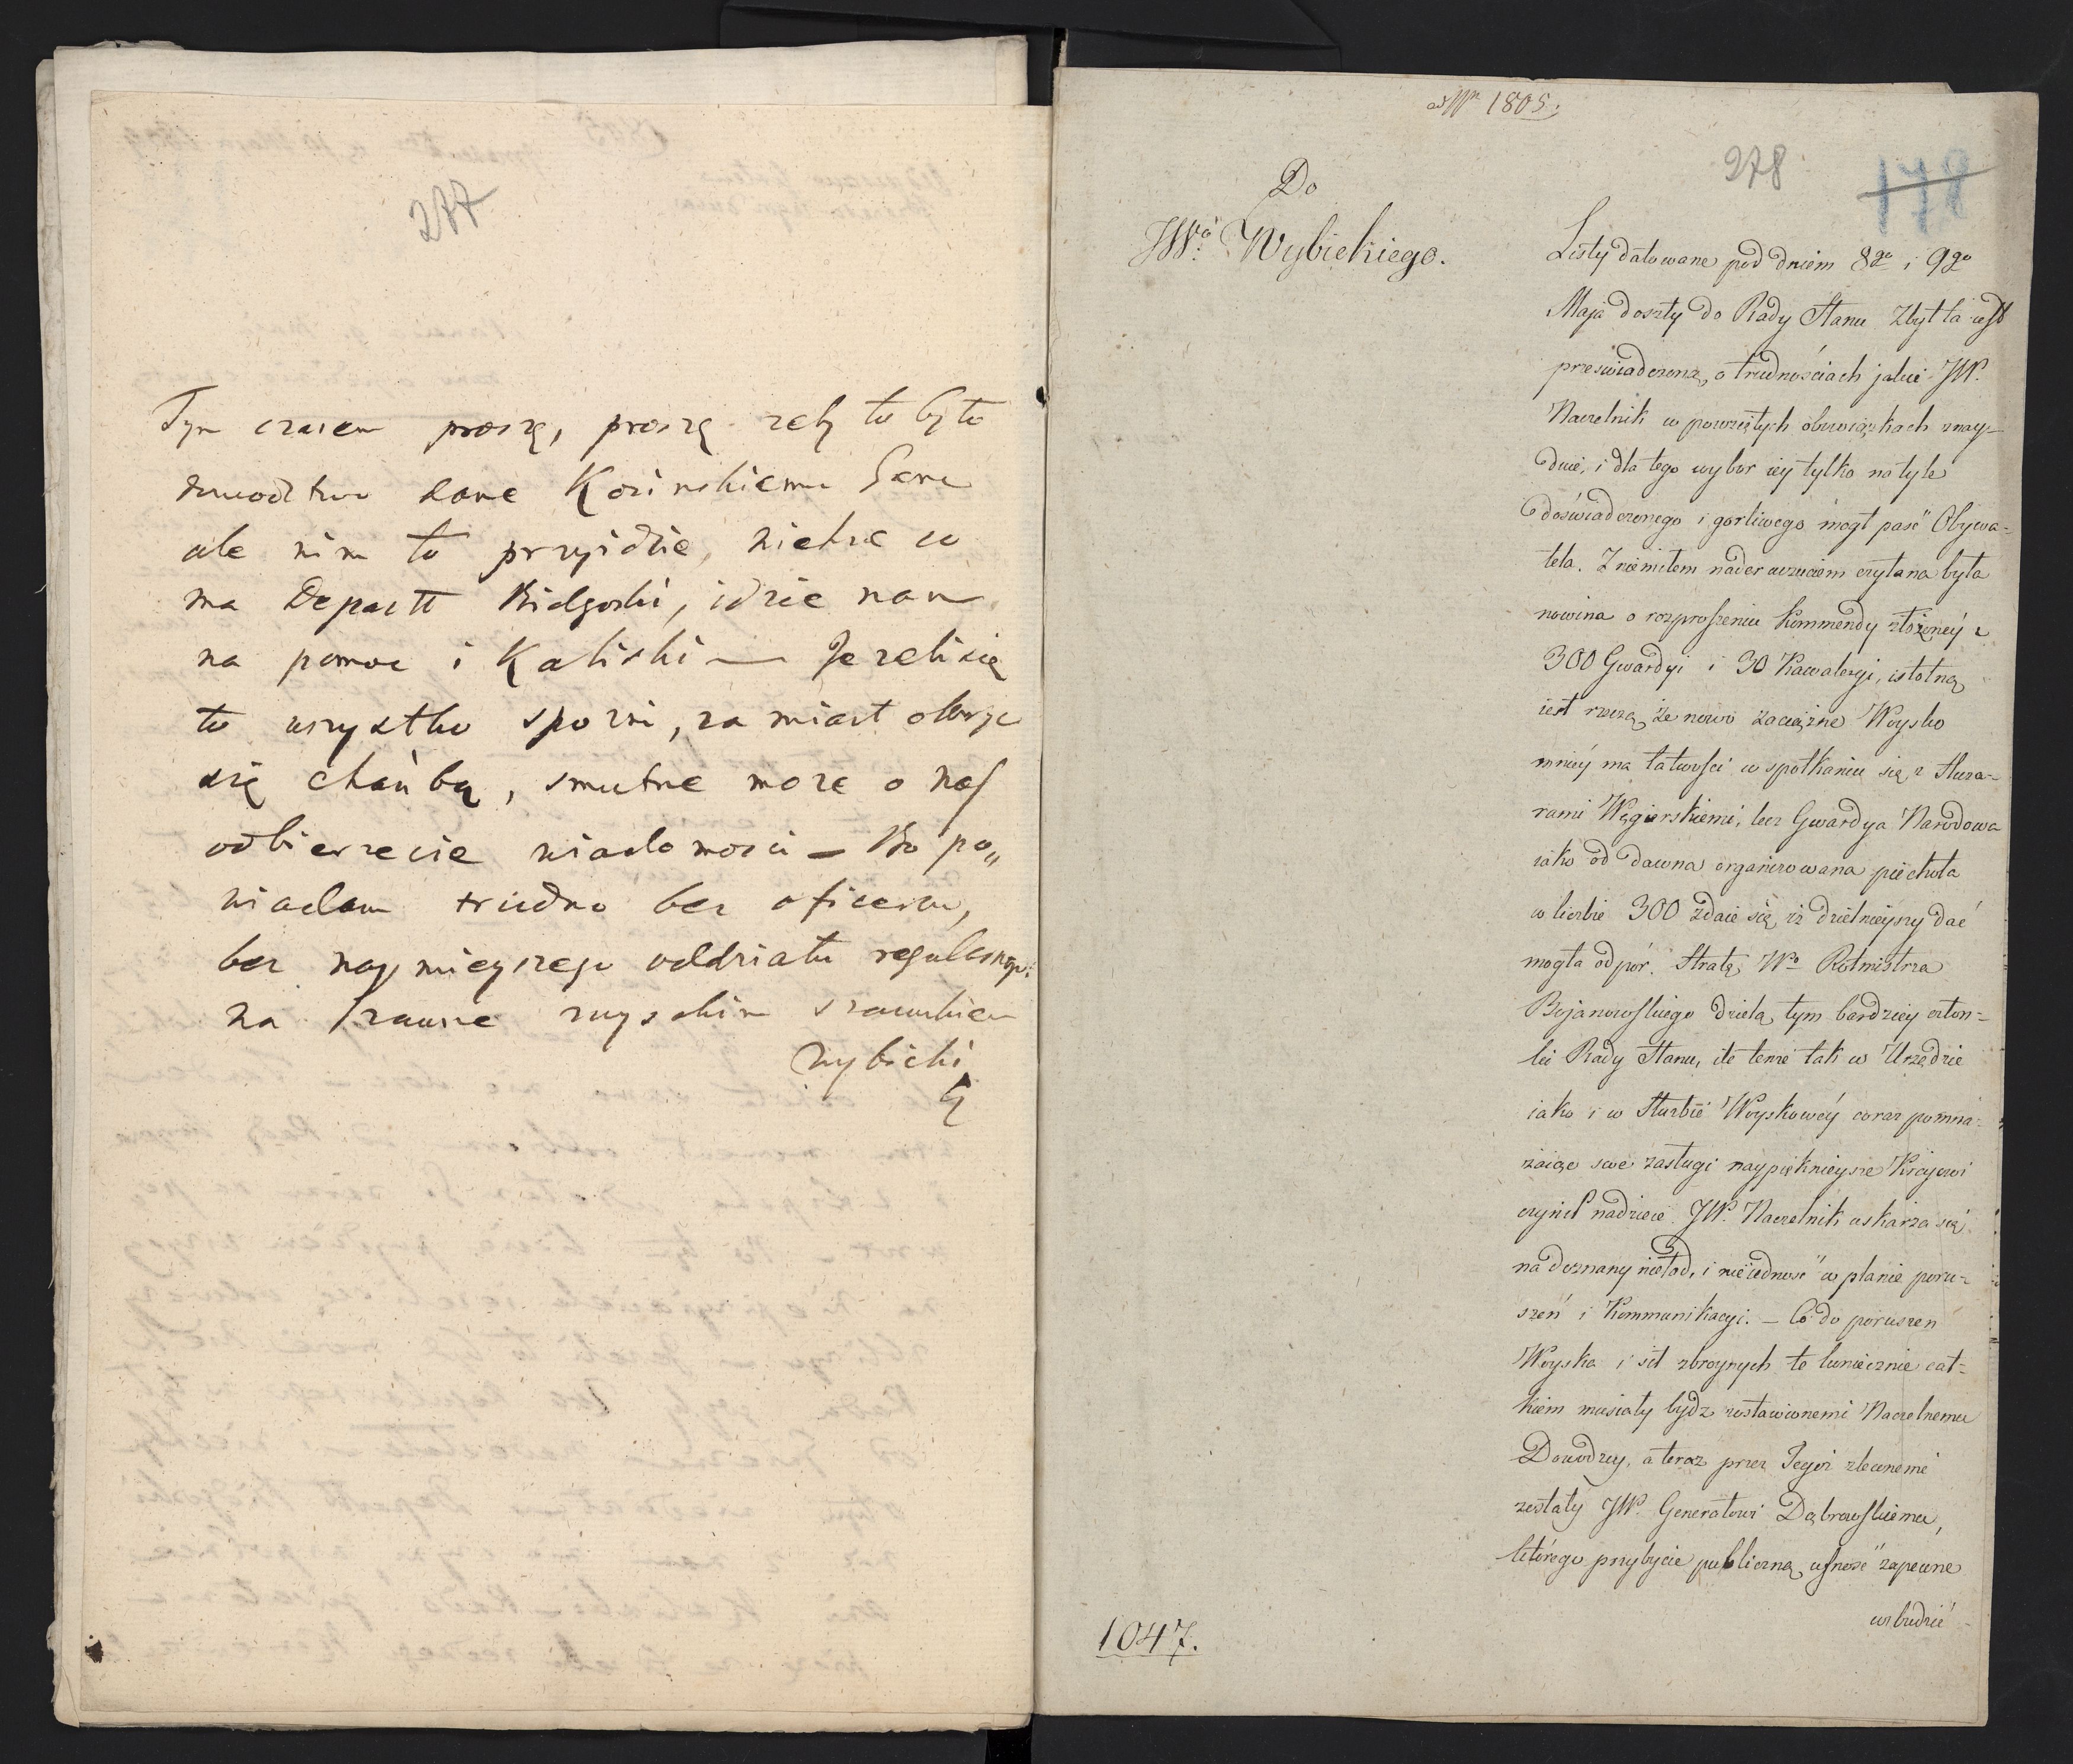 277
Tym czasem proszę, proszę zeby to było
dowodztwo dane Kosinskiemu Gene
ale nim to przyidzie, niechze co
ma Departt Bidgoski, idzie nam
na pomoc i Kaliski — Jezeli się
to wszystko spozni, za miast okryc
się chańbą, smutne może o nas
odbierzecie wiadomosci — Bo po„
wiadam trudno bez oficerow,
bez naymnieyszego oddziału regularnego
Na zawsze z szacunkiem
Wybicki
ad Nr 1805.
278
178
Do
JWo Wybickiego.
Listy datowane pod dniem 8go i 9go
Maja doszły do Rady Stanu. Zbyt ta iest
przeswiadczoną, o trudnościach jakie JW.
Naczelnik w powziętych obowiązkach znay-
duie, i dla tego wybor iey tylko na tyle
doświadczonego i gorliwego mógł paść Obywa-
tela. Z niemiłem nader uczuciem czytana była
nowina o rozproszeniu Kommendy złożonéy z
300 Gwardyi i 30 Kawaleryi, istotną
iest rzeczą że nowo zaciężne Woysko
mniéy ma łatwości w spotkaniu się z Huza-
rami Węgierskiemi, lecz Gwardya Narodowa
iako od dawna organizowana piechota
w liczbie 300 zdaie się iż dzielnieyszy dać
mogła odpór. Stratę Wo Rotmistrza
Bojanowskiego dzielą tym bardziey człon-
ki Rady Stanu, ile tenże tak w Urzędzie
iako i w Służbie Woyskowéy coraz pomna-
żaiąc swe zasługi naypięknieysze Krajowi
czynił nadzieie. JW. Naczelnik uskarża się
na doznany nieład, i nieiedność w planie poru-
szeń i Kommunikacyi. — Co do poruszen
Woyska i sił zbroynych te koniecznie cał-
kiem musiały bydz zostawionemi Naczelnemu
Dowodzcy, a teraz przez Tegoż zleconemi
zostały JW. Generałowi Dąbrowskiemu,
którego przybycie publiczną ufność zapewne
wzbudzić
1047.